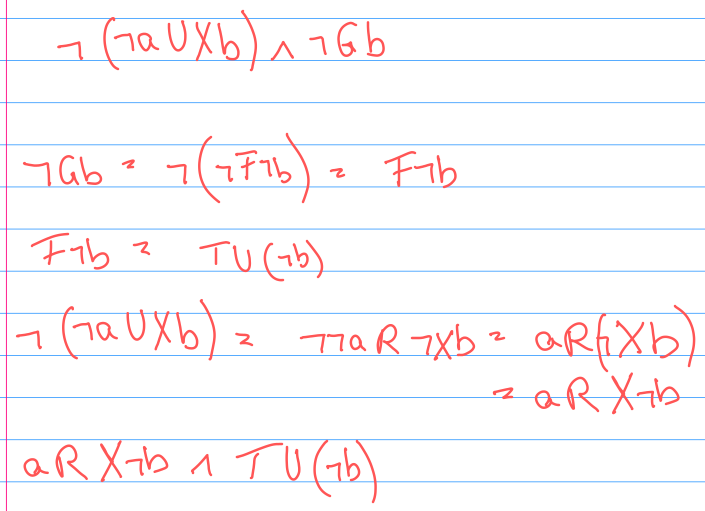 ¬(¬a U Xb) ∧ ¬Gb
¬Gb = ¬(¬F¬b) = F¬b
F¬b = T U (¬b)
¬(¬a U Xb) = ¬¬a R ¬Xb = a R (¬Xb)
= a R X¬b
a R X¬b ∧ T U (¬b)